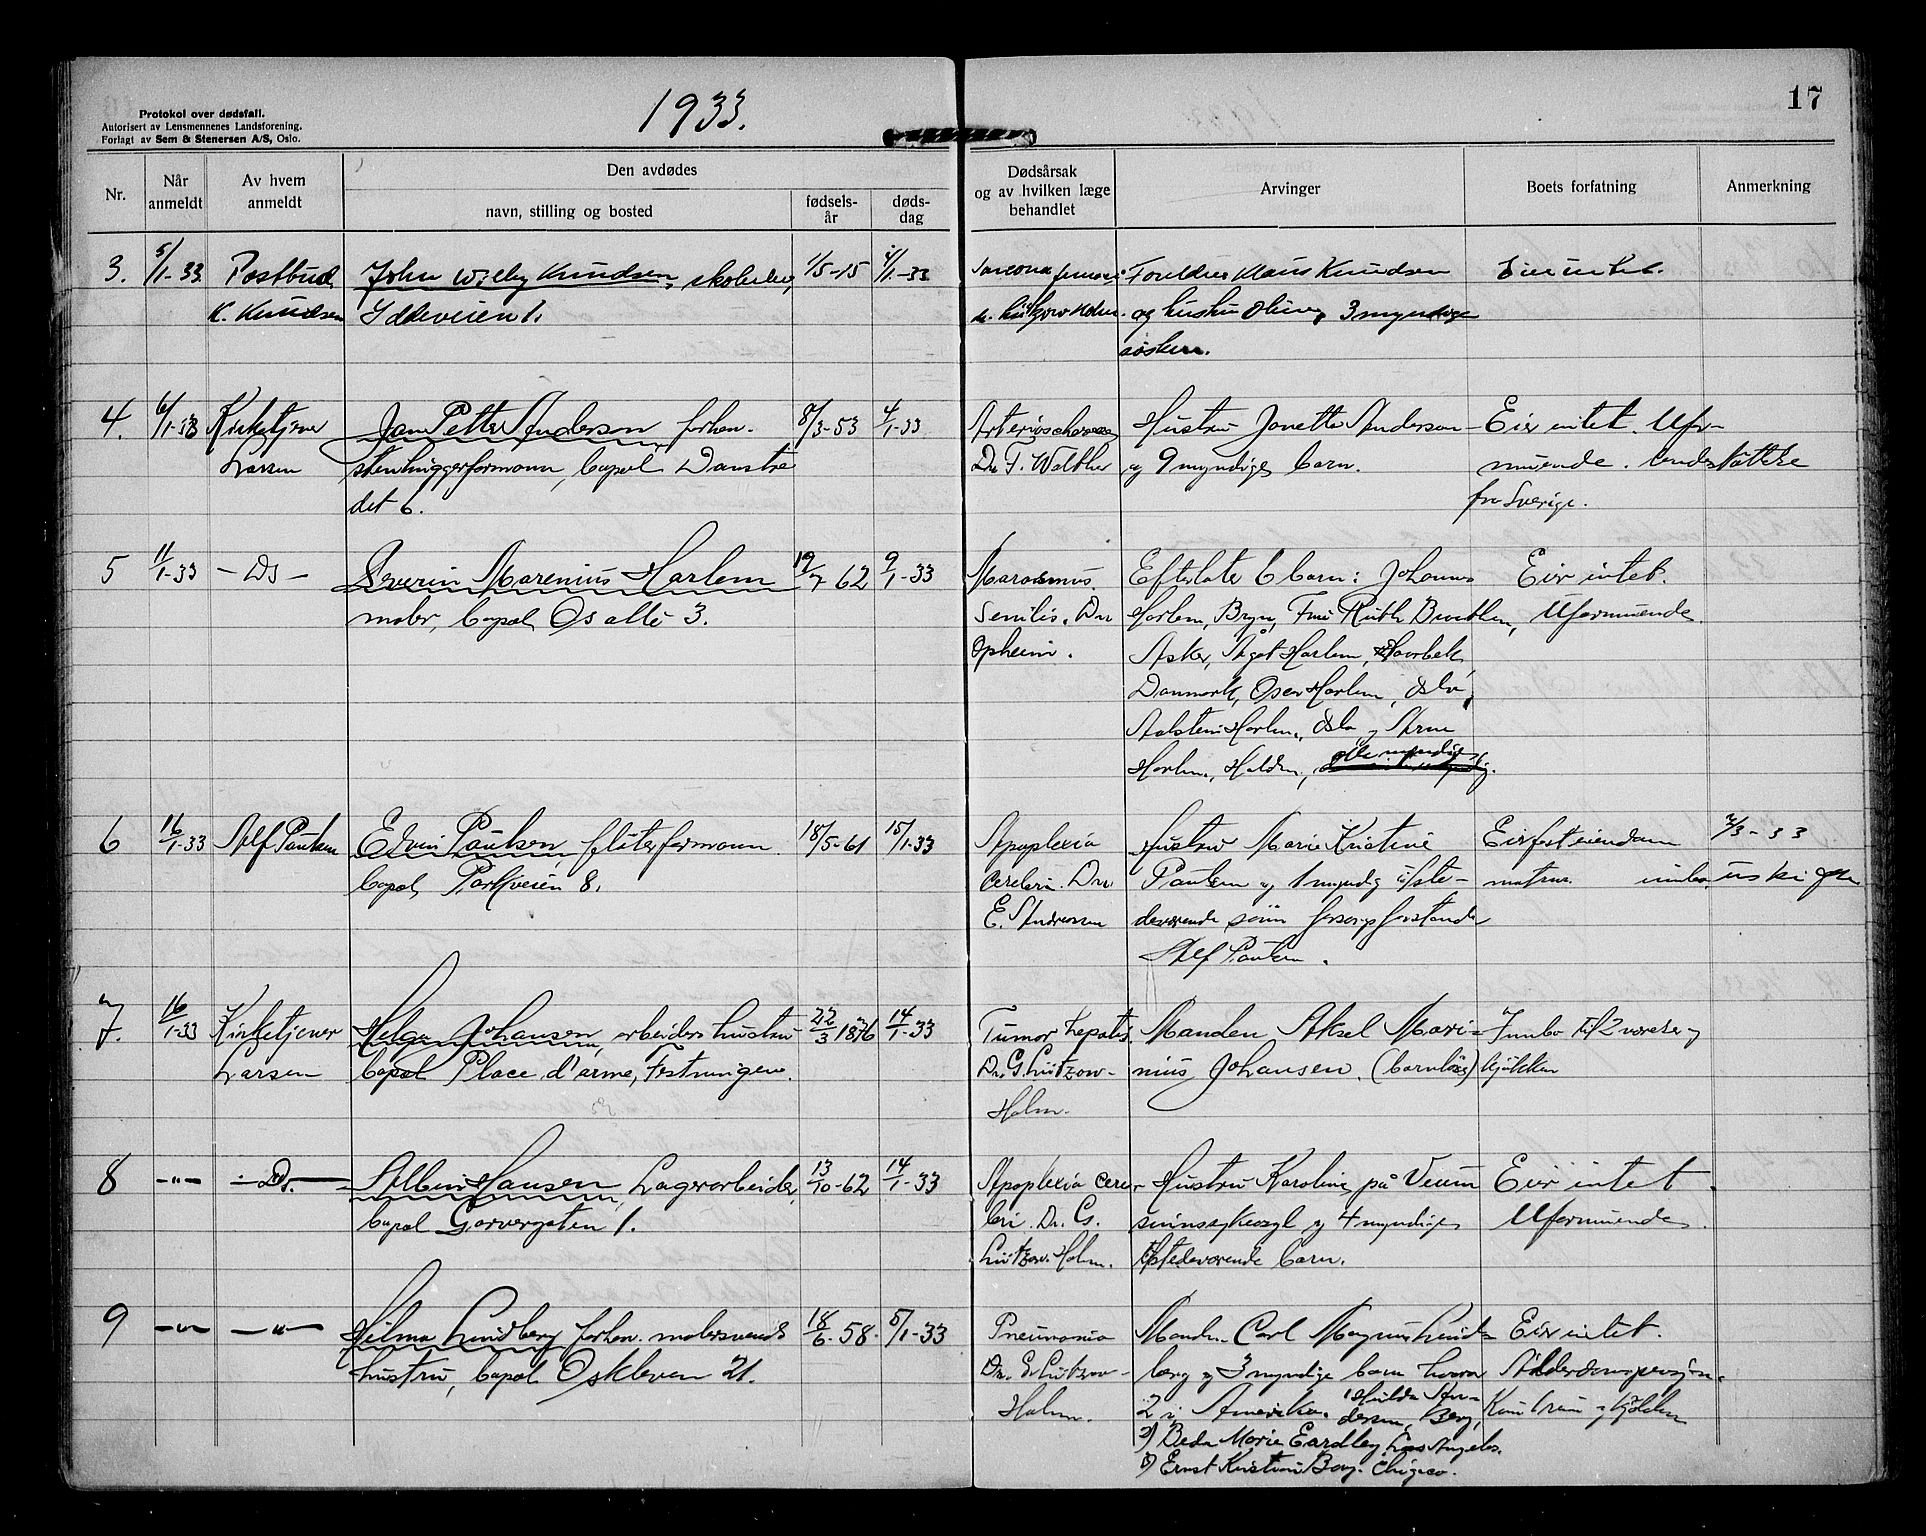 Protokol over dødsfall.
Autorisert av Lensmennenes Landsforening.
Forlagt av Sem & Stenersen A/S, Oslo.
1933.
17
Nr.
Når anmeldt
Av hvem anmeldt
Den avdødes
navn, stilling og bosted
fødselsår
dødsdag
Dødsårsak og av hvilken læge behandlet
Arvinger
Boets forfatning
Anmerkning
3. 5/1-33 Postbud John Willy Knudsen, skoleelev, 1/5-15 4/1-33 Foreldre Klaus Knudsen Eier intet.
K. Knudsen Iddeveien 1. og hustru 3 myndige
søsken.
4. 6/1-33 Kirketjener Jan Petter Anderson forhen. 8/3-53 4/1-33 Hustru Jonette Anderson Eier intet. Ufor-
Larsen stenhuggerformann, bopel Danske Dr. F. Walther og 9 myndige barn. muende. Understøttelse
det 6. fra Sverige.
5 11/1-33 - Do - Severin Marenius Harlem 19/7 62 9/1-33 Marasmus Efterlater 6 barn: Johannes Eier intet.
maler, bopel Os alle 3. Senilis. Dr. Harlem, Bryn, Fru Ruth Uformuende.
Opheim. Asker, Aagot Harlem,
Danmark, Harlem, Oslo,
Harlem, Oslo og Arne
Harlem, Halden, alle myndige.
6 16/1-33 Alf Paulsen Edvin Paulsen fliserformann 18/5-61 15/1-33 Apoplexia Hustru Marie Kristine Eier fast eiendom 2/3-33
bopel, Parkveien 8. cerebri. Dr. Paulsen og 1 myndig tilste- uskifte
E. Andressen deværende sønn
Alf Paulsen.
7. 16/1-33 Kirketjener Helga Johansen, arbeiders hustru 22/3 1876 14/1-33 Tumor hepatis Manden Aksel Mari- Innbo til 2 værelser og
Larsen bopel Place d'arme, Festningen. Dr. G. Lützow- nius Johansen. (barnløse) kjøkken
Holm.
8 -"- - Do. - Albin Hansen, Lagerarbeider, 13/10-62 14/1-33 Apoplexia cere- Hustru Karoline, på Veum Eier intet.
bopel Garvergaten 1. bri. Dr. G. sinnssykeasyl og 4 myndige Uformuende.
Lützow-Holm. tilstedeværende barn.
9 -"- -"- Hilma Lindberg forhen. malersvends 18/6-58. 5/1-33 Pneumonia Manden Carl Magnus Lind- Eier intet.
hustru, bopel Oskleven 21. Dr. G. Lützow- berg og 3 myndige barn hvorav Alderdomspensjon.
Holm. 2 i Amerika. 1) Hulda An-
dersen, Berg,
2) Beda Marie Eardley, Los Angelos.
3) Ernst Kristian Berg. Chigaco.